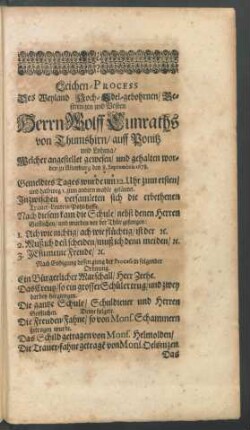 Leichen-Process
Des Weyland Hoch-Edel-gebohrnen/ Ge-
strengen und Vesten
Herrn Wolff Cunraths
von Thumshirn/ auff Ponitz
und
Welcher angestellet gewesen/ und gehalten wor-
den zu Altenburg den 8. Septembris 1678.
Gemeldtes Tages wurde um 12. Uhr zum ersten/
und halbweg 1. zum andern mahl gelautet.
Inzwischen versamleten sich die erbethenen
Trauer-Leute im
Nach diesem kam die Schule/ nebst denen Herren
Geistlichen/ und wurden vor der Thür gesungen:
1. Ach wie nichtig/ ach wie flüchtig/ ist der ꝛc.
2. Muß ich den scheiden/ muß ich denn meiden/ ꝛc.
3. JEsu meine Freude/ ꝛc.
Nach Endigung dessen gieng der Process in folgender
Ordnung.
Ein Bürgerlicher Marschall/ Herr
Das Creutz/ so ein grosser Schüler trug/ und zwey
darbey hergiengen.
Die gantze Schule/ Schuldiener und Herren
Geistlichen.
Die Freuden-Fahne/ so von Mons. Schammern
getragen wurde.
Das Schild getragen von Mons. Helmolden/
Die Trauer-Fahne getragē von Mons.
Das